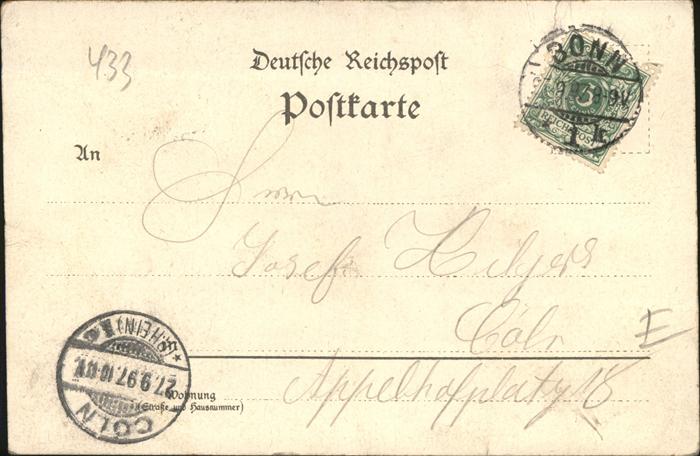 433
Deutsche Reichspost
Postkarte
BONN
5
REICHSPOST
An
Herrn
Josef Hilgers
Cöln
E
Appelhofplatz
Wohnung
(Straße und Hausnummer)
CÖLN
27.9.97.10-11V.
* (RHEIN)